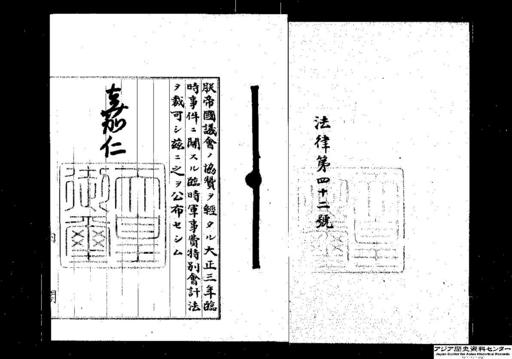 法律第四十二號
朕帝國議會ノ協贊ヲ經タル大正三年臨
時事件ニ關スル臨時軍事費特別會計法
ヲ裁可シ茲ニ之ヲ公布セシム
嘉仁
天皇
御璽
内
閣
アジア歴史資料センター
Japan Center for Asian Historical Records